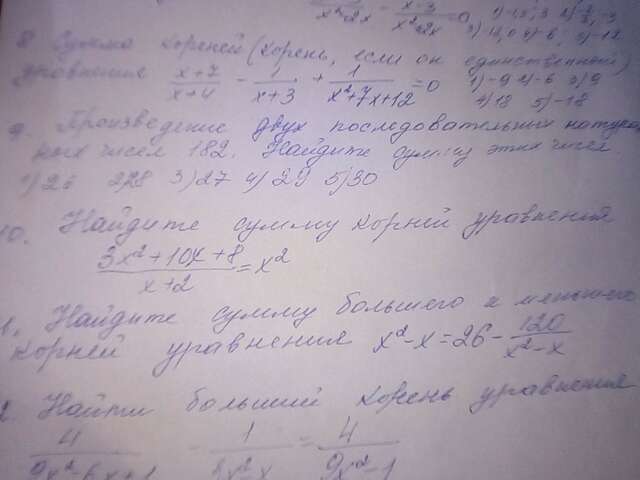 x²-2x x²-2x =0 1) -1,5; 3 2) 2/3; -3
8 Сумма корней (корень, если он единственный)
уравнения (x+7)/(x+4) - 1/(x+3) + 1/(x²+7x+12) =0 1) -9 2) -6 3) 9
4) 18 5) -18
9. Произведение двух последовательных натура
ных чисел 182. Найдите сумму этих чисел.
1) 26 2) 28 3) 27 4) 29 5) 30
10. Найдите сумму корней уравнения
(3x²+10x+8)/(x+2) = x²
1. Найдите сумму большего и меньшего
корней уравнения x²-x=26 - 120/(x²-x)
2. Найти больший корень уравнения
4/(9x²-6x+1) - 1/(3x²-x) = 4/(9x²-1)